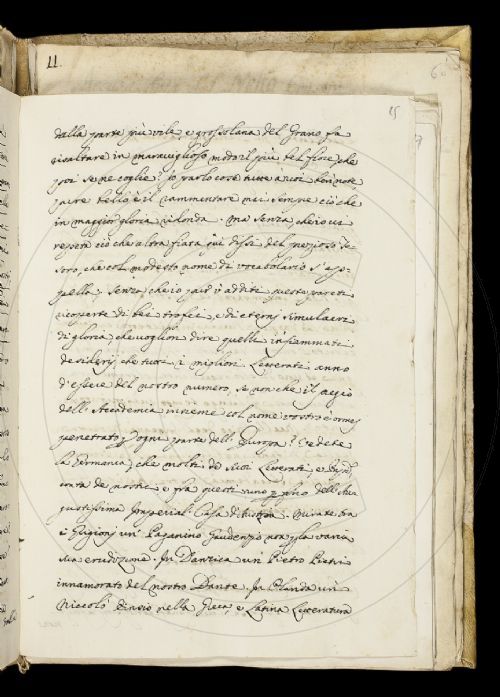 11.
60
25
dalla parte più vile, e grossolana del Grano fa
risaltare in maraviglioso modo il più bel fiore, che
poi se ne coglie? Io parlo cose tutte a voi ben note
pure bello è il rammentare mai sempre ciò che
in maggior gloria ridonda. Ma senza, ch'io vi
repeta ciò che altra fiata qui disse del prezioso te
soro, che col modesto nome di vocabolario s'ap
pella; senza, ch'io pur v'additi queste pareti
ricoperte di bei trofei, e di eterni simulacri
di gloria, che voglion dire quelle infiammate
desiderj che tutti i migliori Letterati anno
d'essere del nostro numero, se non che il pregio
dell'Accademia insieme col nome vostro è ormai
penetrato p ogni parte dell'Europa? Vedete
la Germania, che molti de suoi Letterati, e
conta de nostri e fra questi uno dell'Au
gustissima Imperial Casa d'Austria. Mirate tra
i Grigioni un Paganino Gaudenzio non p la varia
sua erudizione. In Danzica un Pietro
innamorato del nostro Dante. In Olanda un
Niccolò Einsio nella Greca, e Latina Letteratura